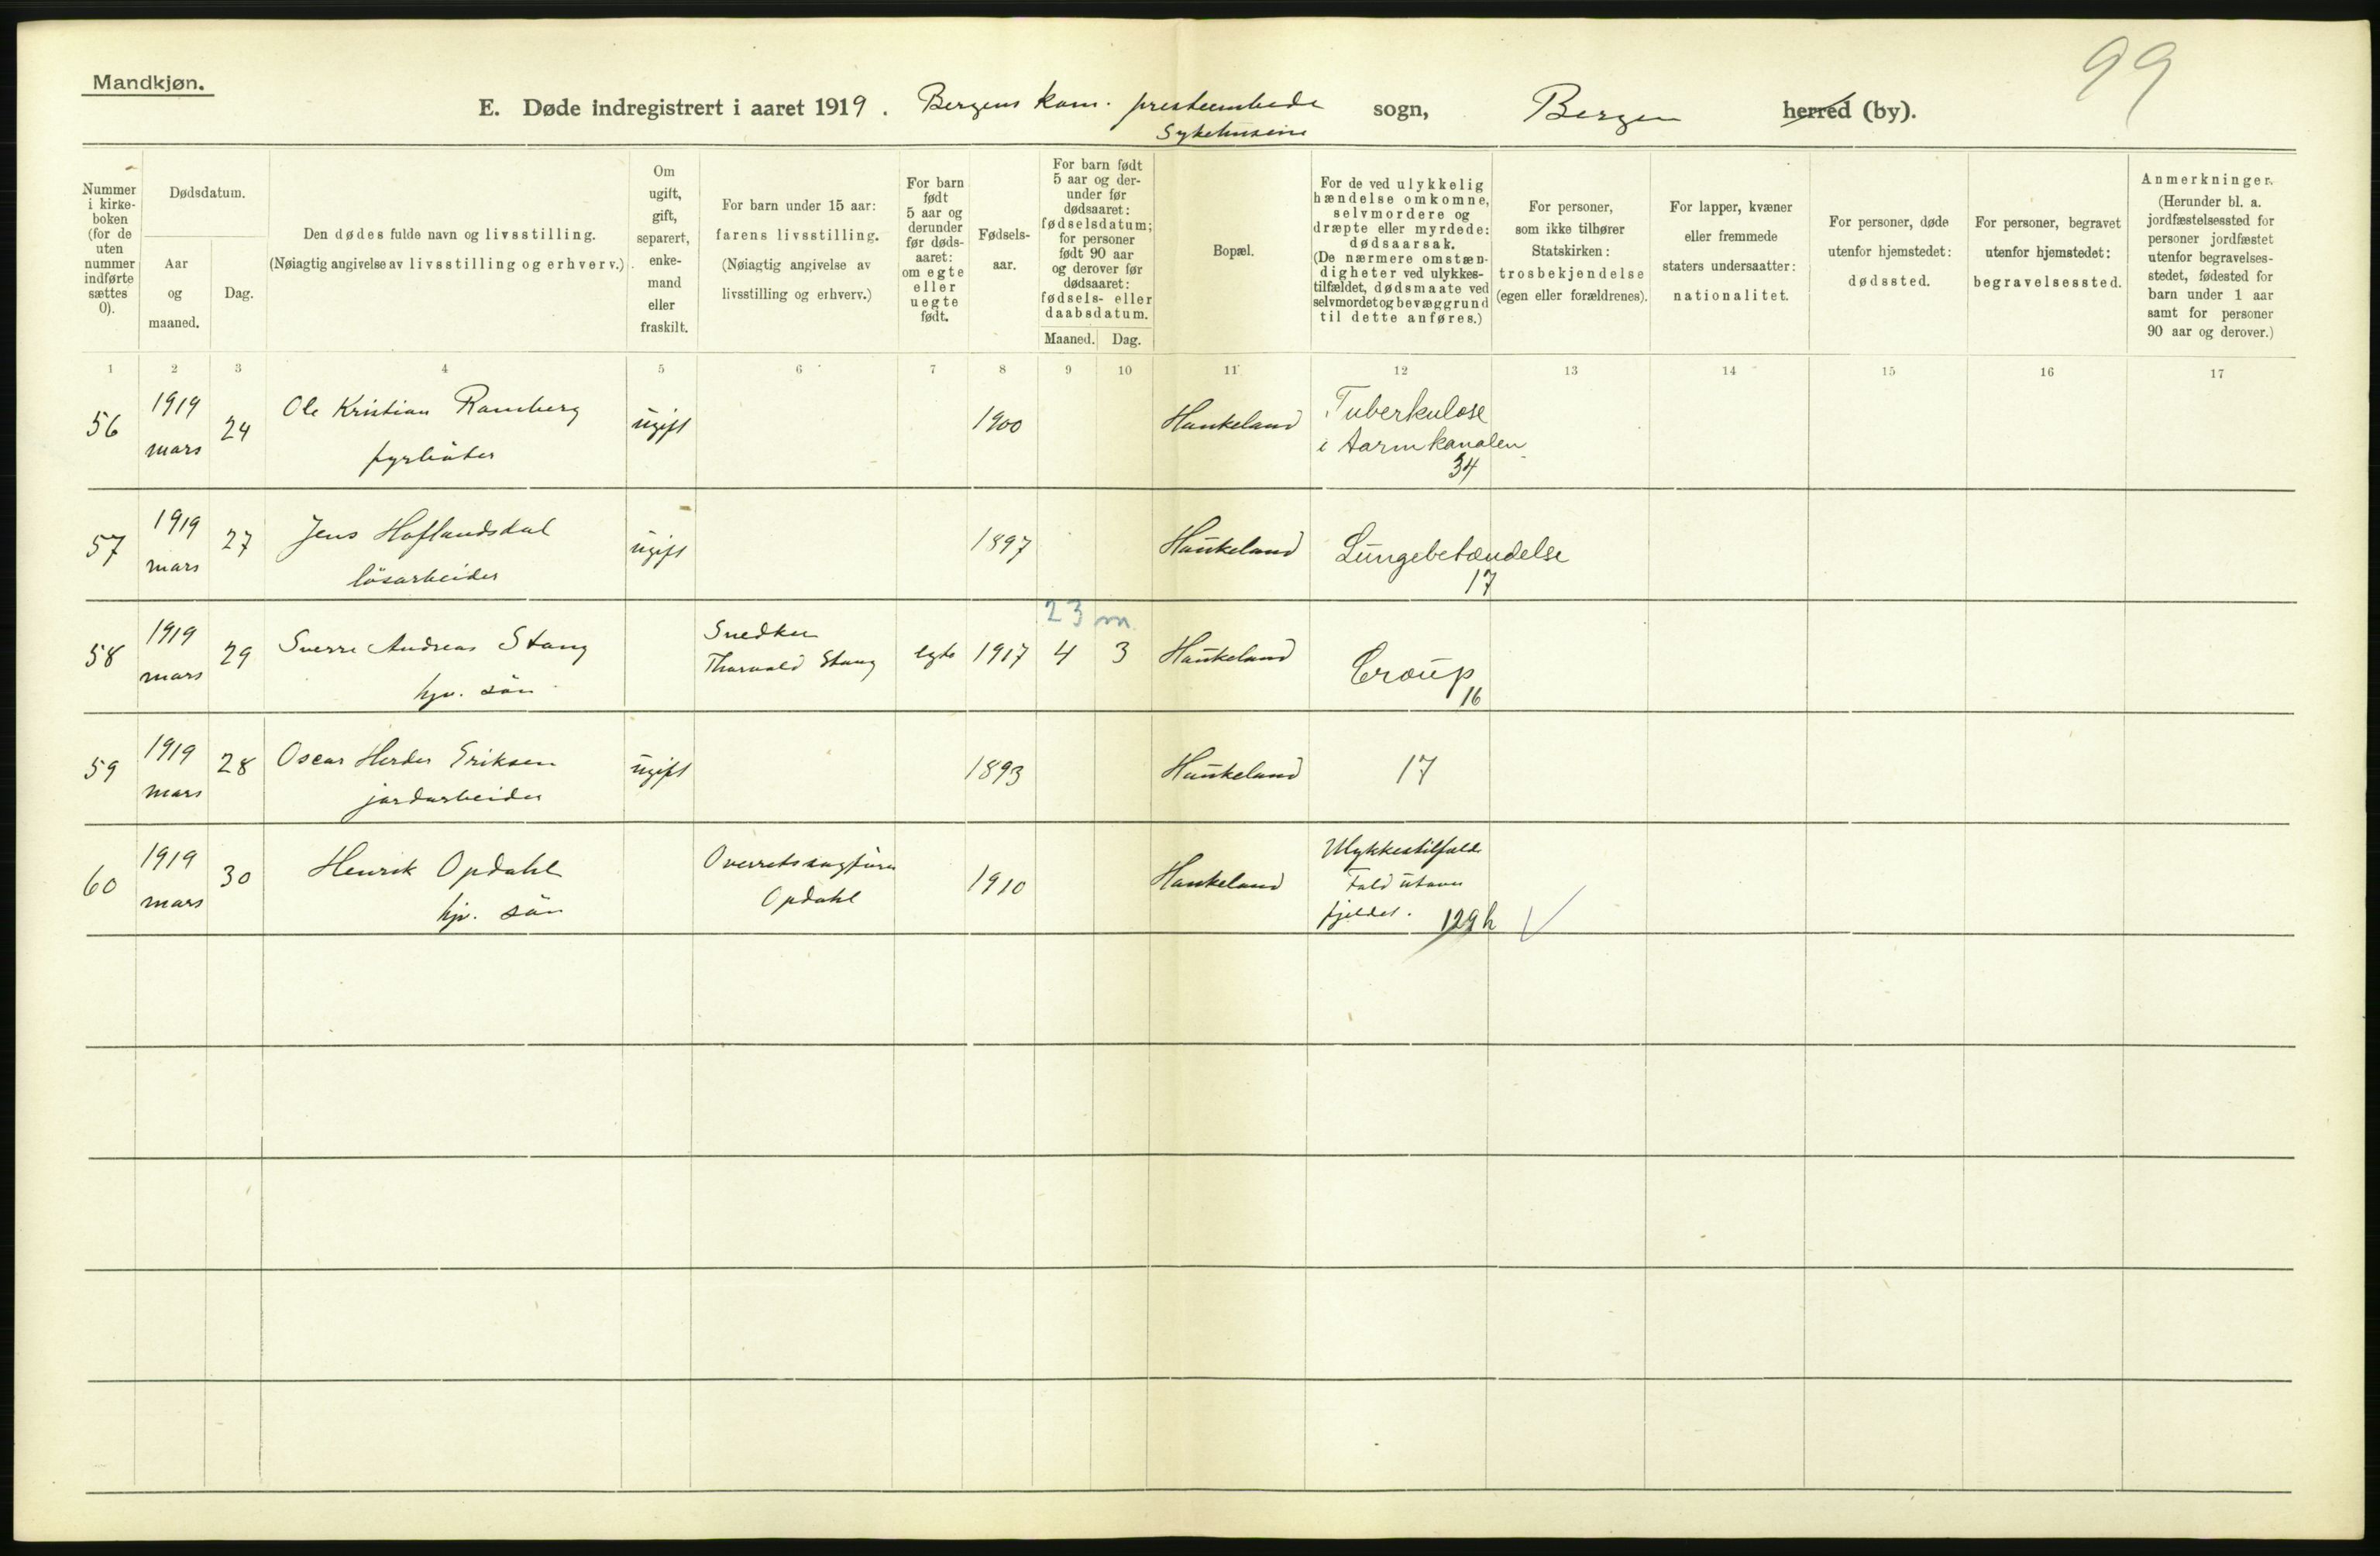 99
Mandkjøn.
E. Døde indregistrert i aaret 1919. Bergens kom. presteembede sogn, Bergen herred (by).
Sykehusene
Nummer i kirke-boken (for de uten nummer indførte sættes 0).
Dødsdatum.
Aar og maaned.
Dag.
Den dødes fulde navn og livsstilling.
(Nøiagtig angivelse av livsstilling og erhverv.)
Om ugift, gift, separert, enke-mand eller fraskilt.
For barn under 15 aar:
farens livsstilling.
(Nøiagtig angivelse av livsstilling og erhverv.)
For barn født 5 aar og derunder før døds-aaret: om egte eller uegte født.
Fødsels-aar.
For barn født 5 aar og der-under før dødsaaret: fødselsdatum; for personer født 90 aar og derover før dødsaaret: fødsels- eller daabsdatum.
Maaned. Dag.
Bopæl.
For de ved ulykkelig hændelse omkomne, selvmordere og dræpte eller myrdede: dødsaarsak.
(De nærmere omstæn-digheter ved ulykkes-tilfældet, dødsmaate ved selvmordet og bevæggrund til dette anføres.)
For personer, som ikke tilhører Statskirken: trosbekjendelse (egen eller forældrenes).
For lapper, kvæner eller fremmede staters undersaatter: nationalitet.
For personer, døde utenfor hjemstedet: dødssted.
For personer, begravet utenfor hjemstedet: begravelsessted.
Anmerkninger.
(Herunder bl. a. jordfæstelsessted for personer jordfæstet utenfor begravelses-stedet, fødested for barn under 1 aar samt for personer 90 aar og derover.)
1 2 3 4 5 6 7 8 9 10 11 12 13 14 15 16 17
56 1919 mars 24 Ole Kristian Ramberg
fyrbøter
ugift 1900 Haukeland Tuberkulose
i tarmkanalen
34
57 1919 mars 27 Jens Haflandsdal
løsarbeider
ugift 1897 Haukeland Lungebetændelse
17
58 1919 mars 29 Sverre Andreas Stang
hjv. søn
Snedker
Thorvald Stang
egte 1917 4 3 Haukeland Croup
23 m
16
59 1919 mars 28 Oscar Herder Eriksen
jordarbeider
ugift 1893 Haukeland 17
60 1919 mars 30 Henrik Opdahl
hjv. søn
Overretssagfører
Opdahl
1910 Haukeland Ulykkestilfælde
Fald utover
fjeldet. 129 h